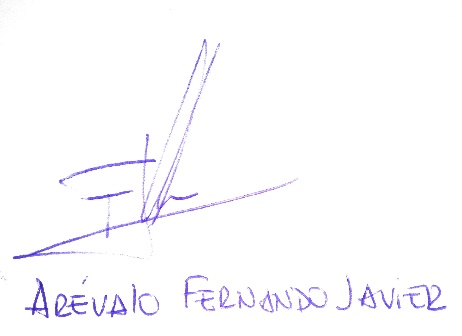 ARÉVAlO FERNANDO JAVIER